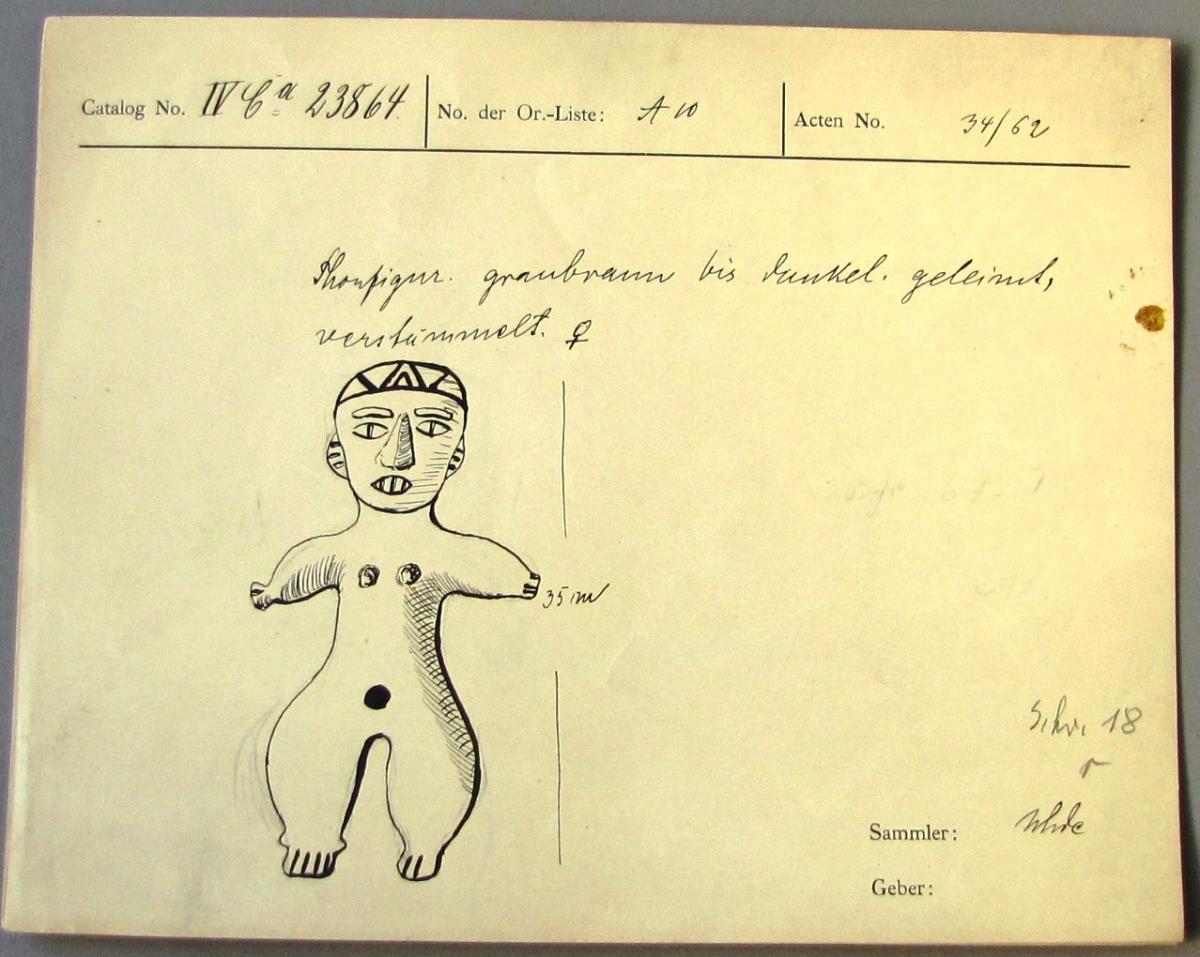 Catalog No. IV Ca 23864. No. der Or.-Liste: A 10 Acten No. 34/62
Thonfigur. graubraun bis dunkel. geleimt,
verstümmelt. ♀
35
Schr. 18
r
Sammler: Uhde
Geber: